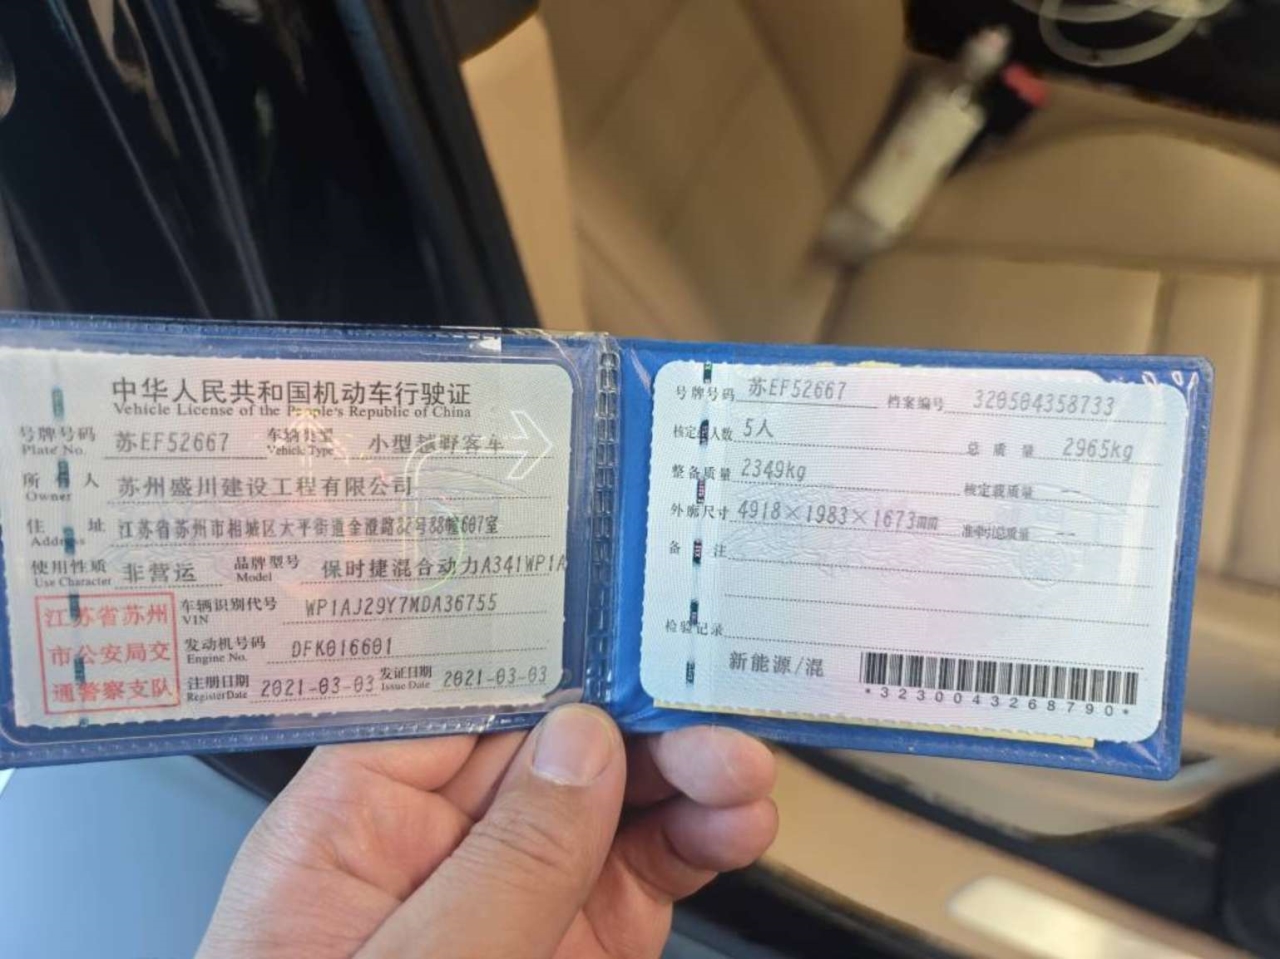 中华人民共和国机动车行驶证
Vehicle License of the People's Republic of China
号牌号码 苏EF52667 车辆类型 小型越野客车
Plate No. Vehicle Type
所有人 苏州盛川建设工程有限公司
Owner
住址 江苏省苏州市相城区太平街道金澄路88号88幢607室
Address
使用性质 非营运 品牌型号 保时捷混合动力A341WP1A
Use Character Model
江苏省苏州
市公安局交
通警察支队
车辆识别代号 WP1AJ29Y7MDA36755
VIN
发动机号码 DFK016601
Engine No.
注册日期 2021-03-03 发证日期 2021-03-03
Register Date Issue Date
号牌号码 苏EF52667 档案编号 320504358733
核定人数 5人 总质量 2965kg
整备质量 2349kg 核定载质量 --
外廓尺寸 4918×1983×1673mm 准牵引总质量 --
备注
检验记录
新能源/混
*3230043268790*